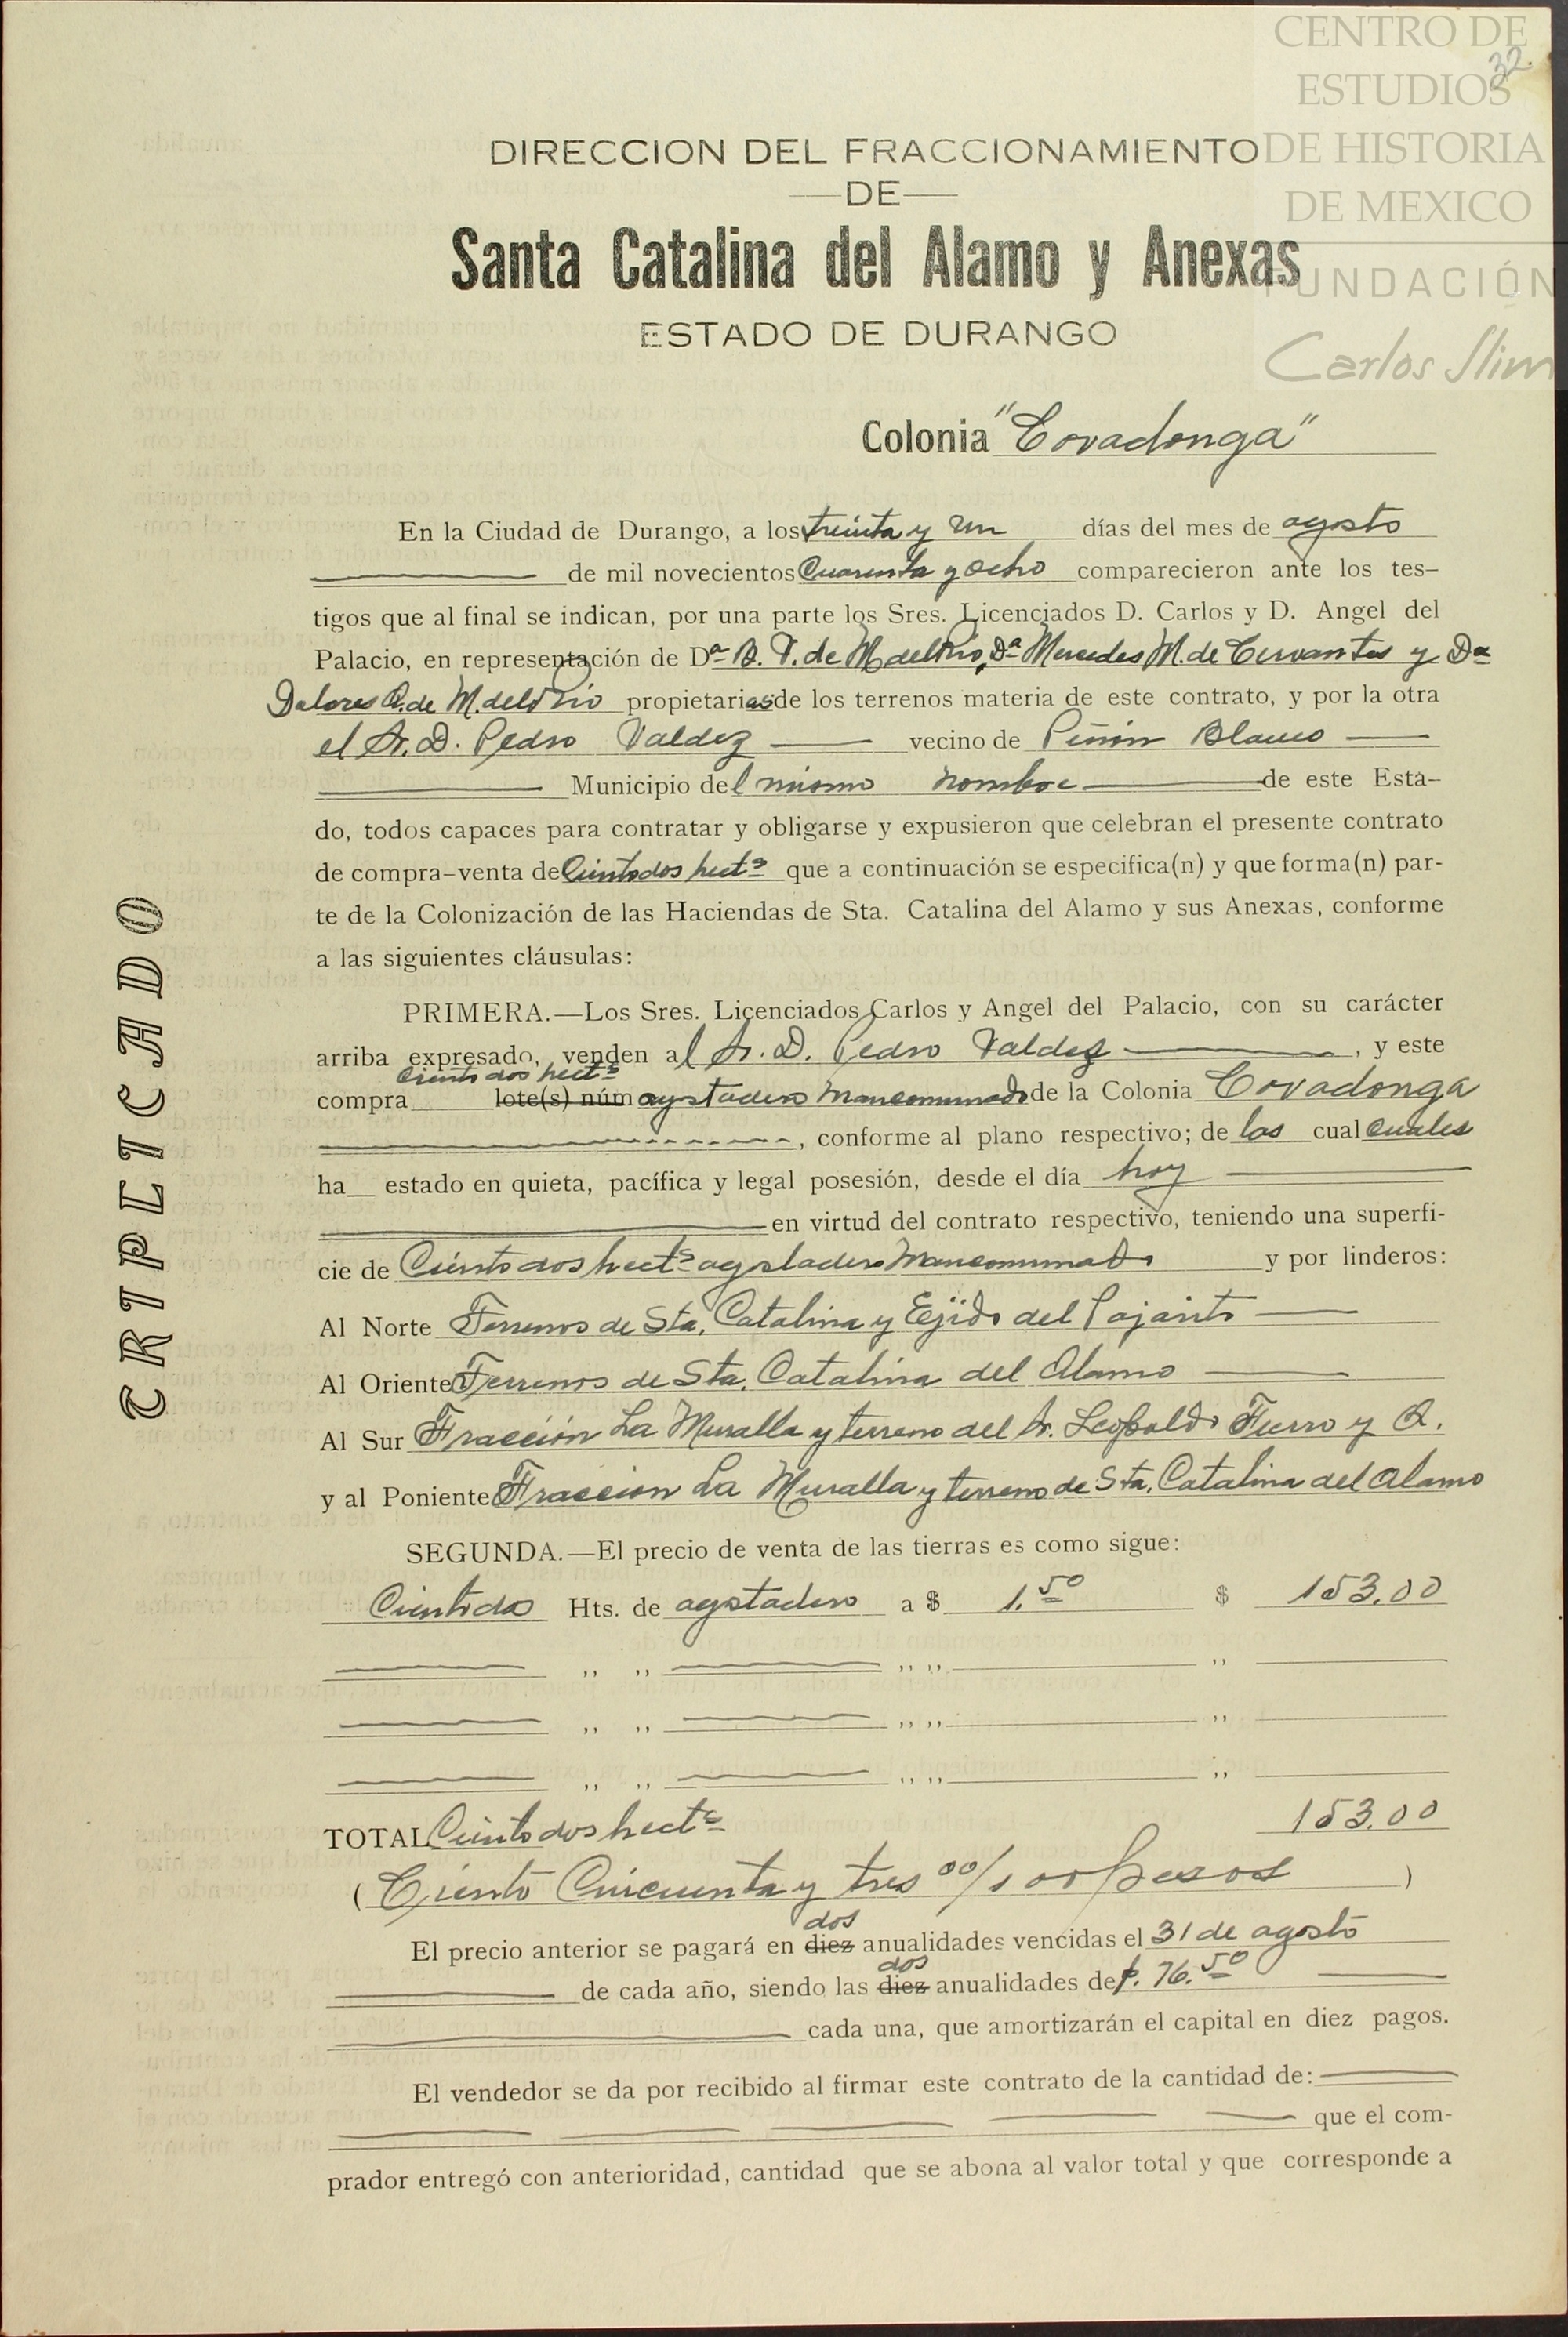 CENTRO DE
ESTUDIOS
DE HISTORIA
DE MEXICO
FUNDACIÓN
Carlos Slim
32.
DIRECCION DEL FRACCIONAMIENTO
DE
Santa Catalina del Alamo y Anexas
ESTADO DE DURANGO
Colonia "Covadonga"
En la Ciudad de Durango, a los treinta y un días del mes de agosto
de mil novecientos Cuarenta y ocho comparecieron ante los tes-
tigos que al final se indican, por una parte los Sres. Licenciados D. Carlos y D. Angel del
Palacio, en representación de Da. B. P. de M del Rio, Da. Mercedes M. de Cervantes y Da
Dolores R. de M. del Rio propietarias de los terrenos materia de este contrato, y por la otra
el Sr. D. Pedro Valdez vecino de Peñón Blanco
Municipio del mismo nombre de este Esta-
do, todos capaces para contratar y obligarse y expusieron que celebran el presente contrato
de compra-venta de Ciento dos hects que a continuación se especifica(n) y que forma(n) par-
te de la Colonización de las Haciendas de Sta. Catalina del Alamo y sus Anexas, conforme
a las siguientes cláusulas:
PRIMERA.—Los Sres. Licenciados Carlos y Angel del Palacio, con su carácter
arriba expresado, venden al Sr. D. Pedro Valdez, y este
Ciento dos hects
compra lote(s) núm agostadero mancomunado de la Colonia Covadonga
, conforme al plano respectivo; de las cual cuales
ha estado en quieta, pacífica y legal posesión, desde el día hoy
en virtud del contrato respectivo, teniendo una superfi-
cie de Ciento dos hects agostadero mancomunado y por linderos:
Al Norte Terrenos de Sta. Catalina y Ejido del Pajarito
Al Oriente Terrenos de Sta. Catalina del Alamo
Al Sur Fracción La Muralla y terreno del Sr. Leopoldo Fierro y R.
y al Poniente Fraccion La Muralla y terreno de Sta. Catalina del Alamo
SEGUNDA.—El precio de venta de las tierras es como sigue:
Ciento dos Hts. de agostadero a $ 1.50 $ 153.00
,, ,, ,, ,, ,,
,, ,, ,, ,, ,,
,, ,, ,, ,, ,,
TOTAL Ciento dos hects 153.00
( Ciento Cincuenta y tres 00/100 pesos )
dos
El precio anterior se pagará en diez anualidades vencidas el 31 de agosto
dos
de cada año, siendo las diez anualidades de $. 76.50
cada una, que amortizarán el capital en diez pagos.
El vendedor se da por recibido al firmar este contrato de la cantidad de:
que el com-
prador entregó con anterioridad, cantidad que se abona al valor total y que corresponde a
TRIPLICADO